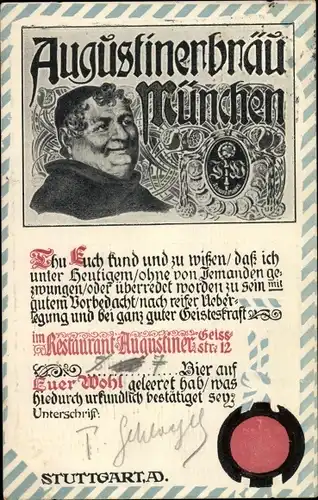 Augustinerbräu
München
Thu Euch kund und zu wißen/daß ich
unter Heutigem/ohne von Jemanden ge-
zwungen/oder überredet worden zu sein mit
gutem Vorbedacht/nach reifer Ueber-
legung und bei ganz guter Geisteskraft
im Restaurant Augustiner Geiss-
str: 12
7 Bier auf
Euer Wohl geleeret hab/was
hiedurch urkundlich bestätiget sey:
Unterschrift:
STUTTGART, AD.